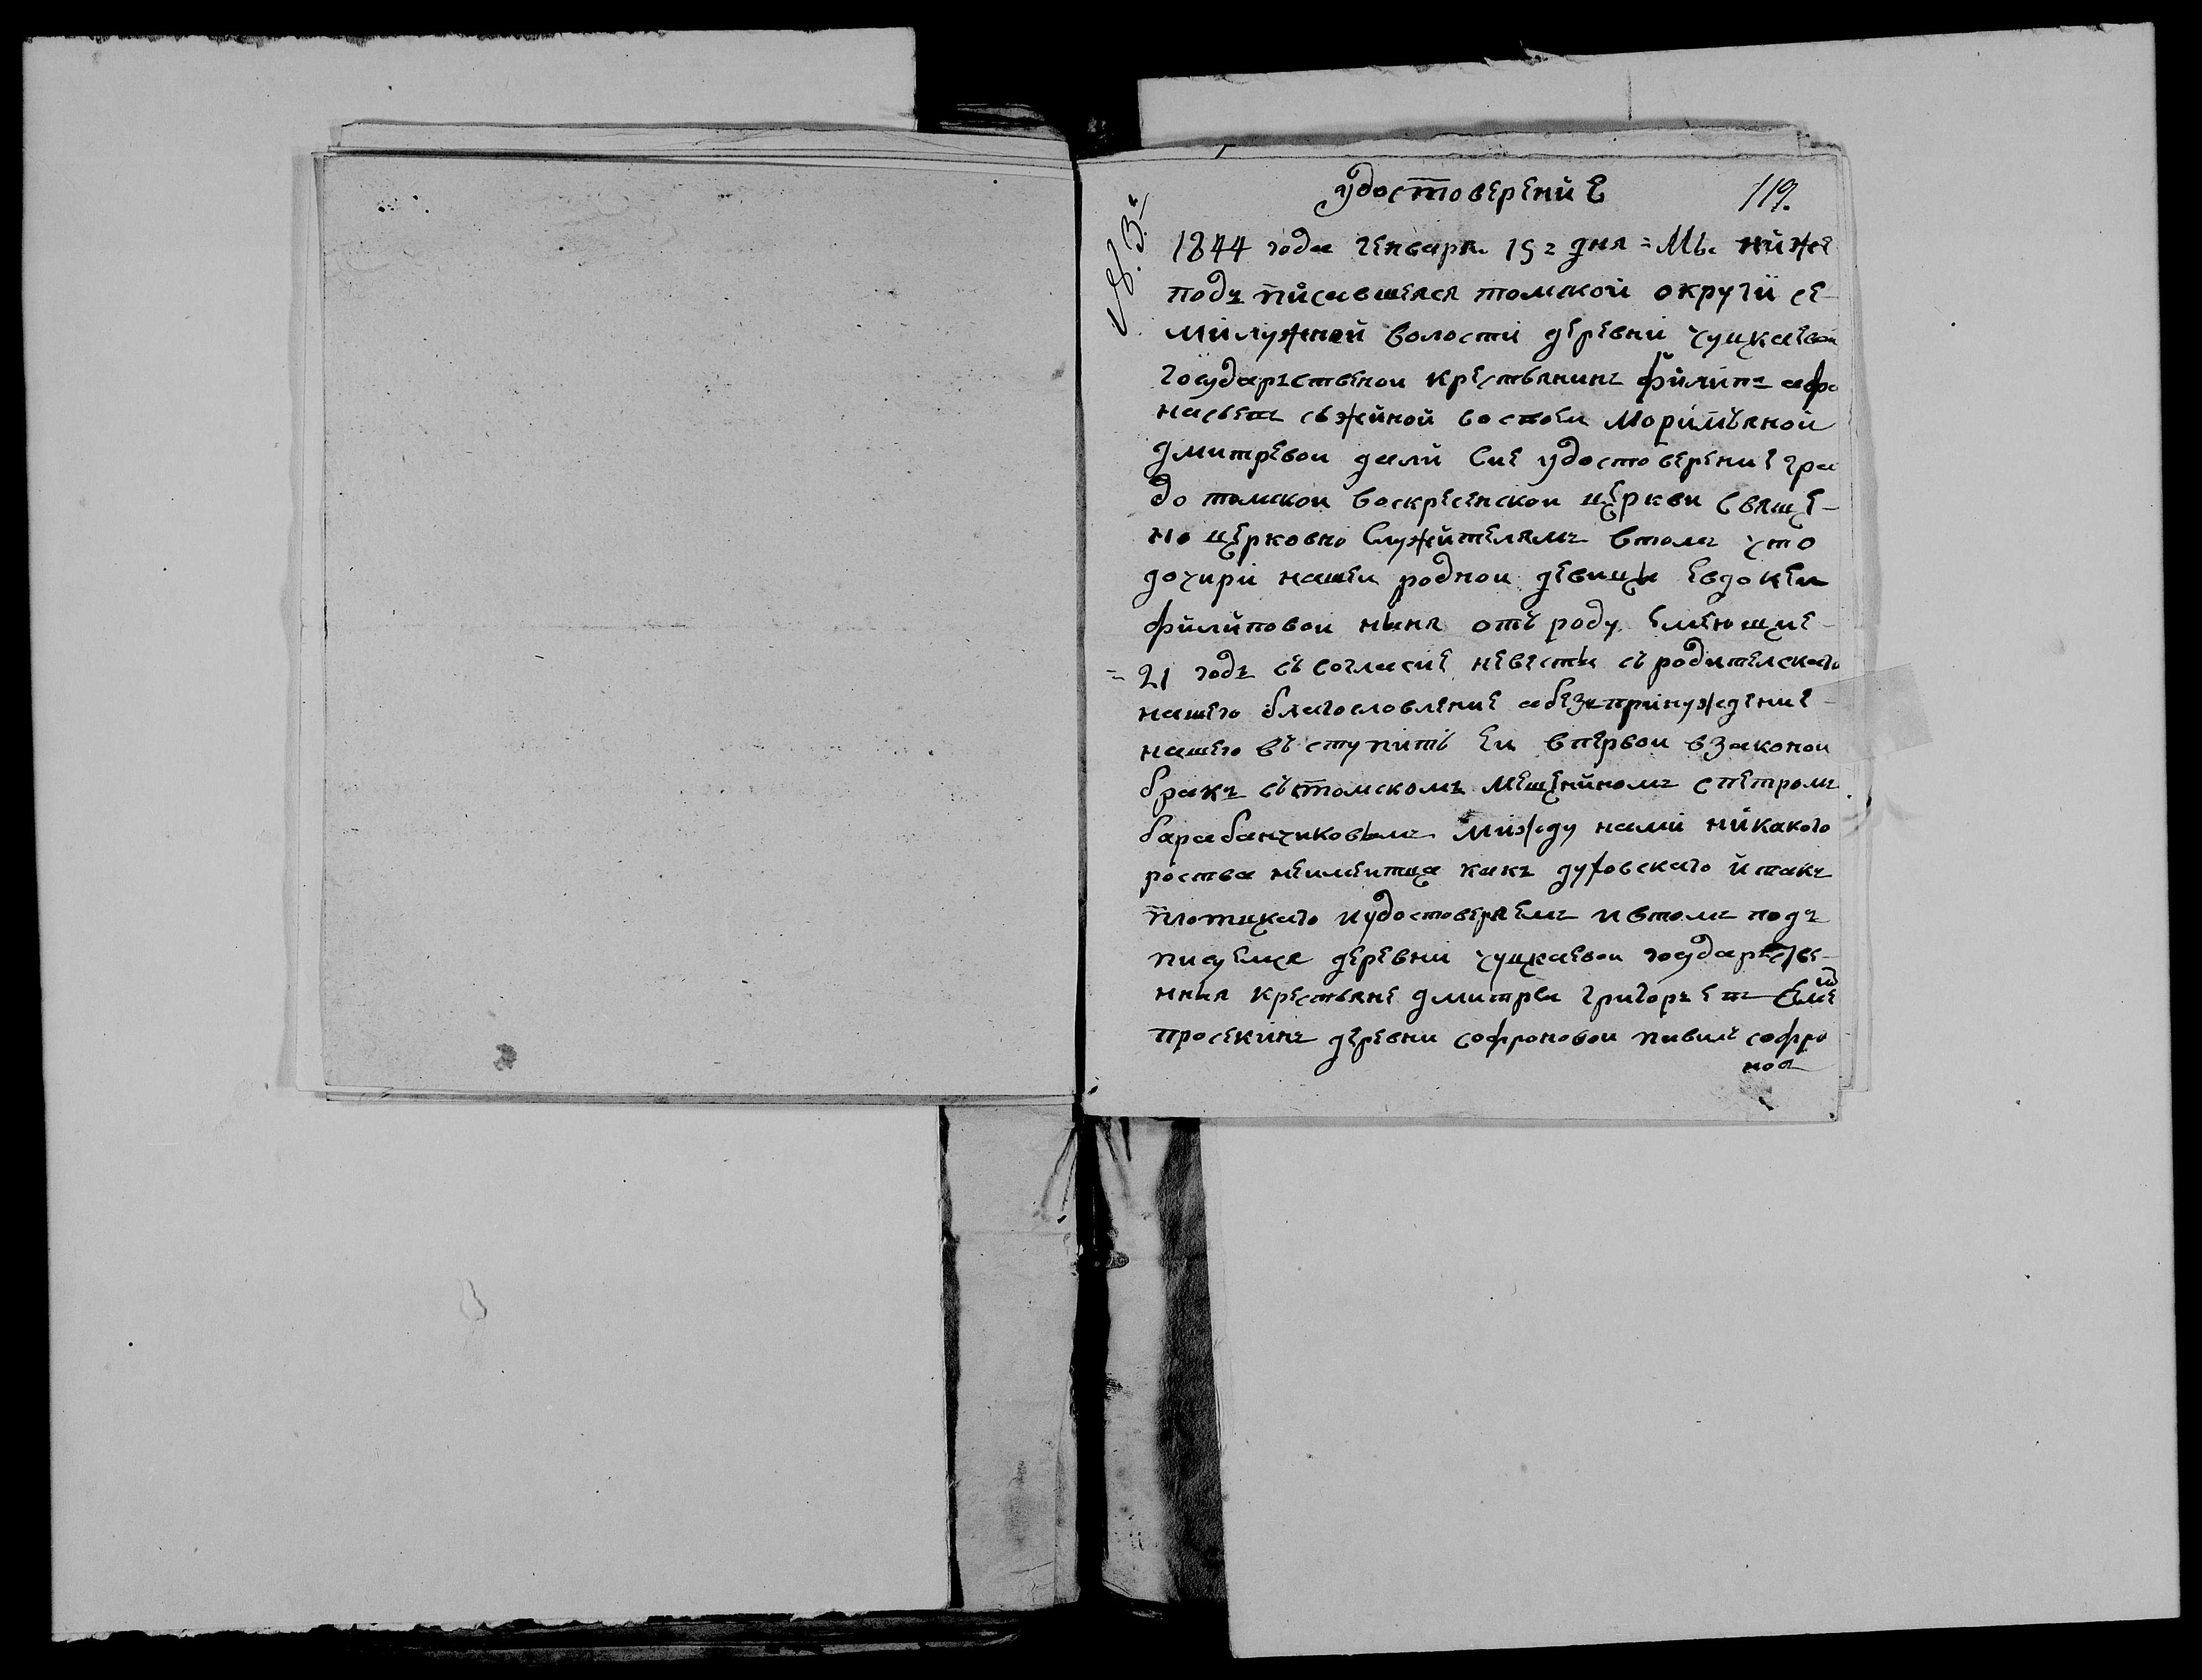 удостоверение
119.
№ 3й
1844 года генваря 15ъ дня = Мы ниже
подъ писавшеяся томской округи се-
милужной волости деревни чуцкаевои
государъственои крестьянинъ филипъ афо
насьетъ сьженой восвоеи Моримьяной
дмитревои дали Сие удостоверение гра
до томскои воскресенскои церкви Свяще-
но церковно Служителямъ втомъ что
дочири нашеи роднои девицы евдокеи
филиповои ныня отъ роду емеющие
= 21 годъ съ согласие невесты съ родителскаго
нашего благословление абезъпринуждение
нашего въ ступить еи впервои взаконои
бракъ сътомскомъ мещениномъ спетромъ
барабанчиковымъ Между нами никакого
роства неимеитца какъ духовскаго итакъ
плотцкаго иудостоверяемъ ивтомъ подъ
писуемся деревни чуцкаевои государстве-
нныя крестьяне дмитреи григорьетъ
просекинъ деревни софроновои павилъ софро
нов